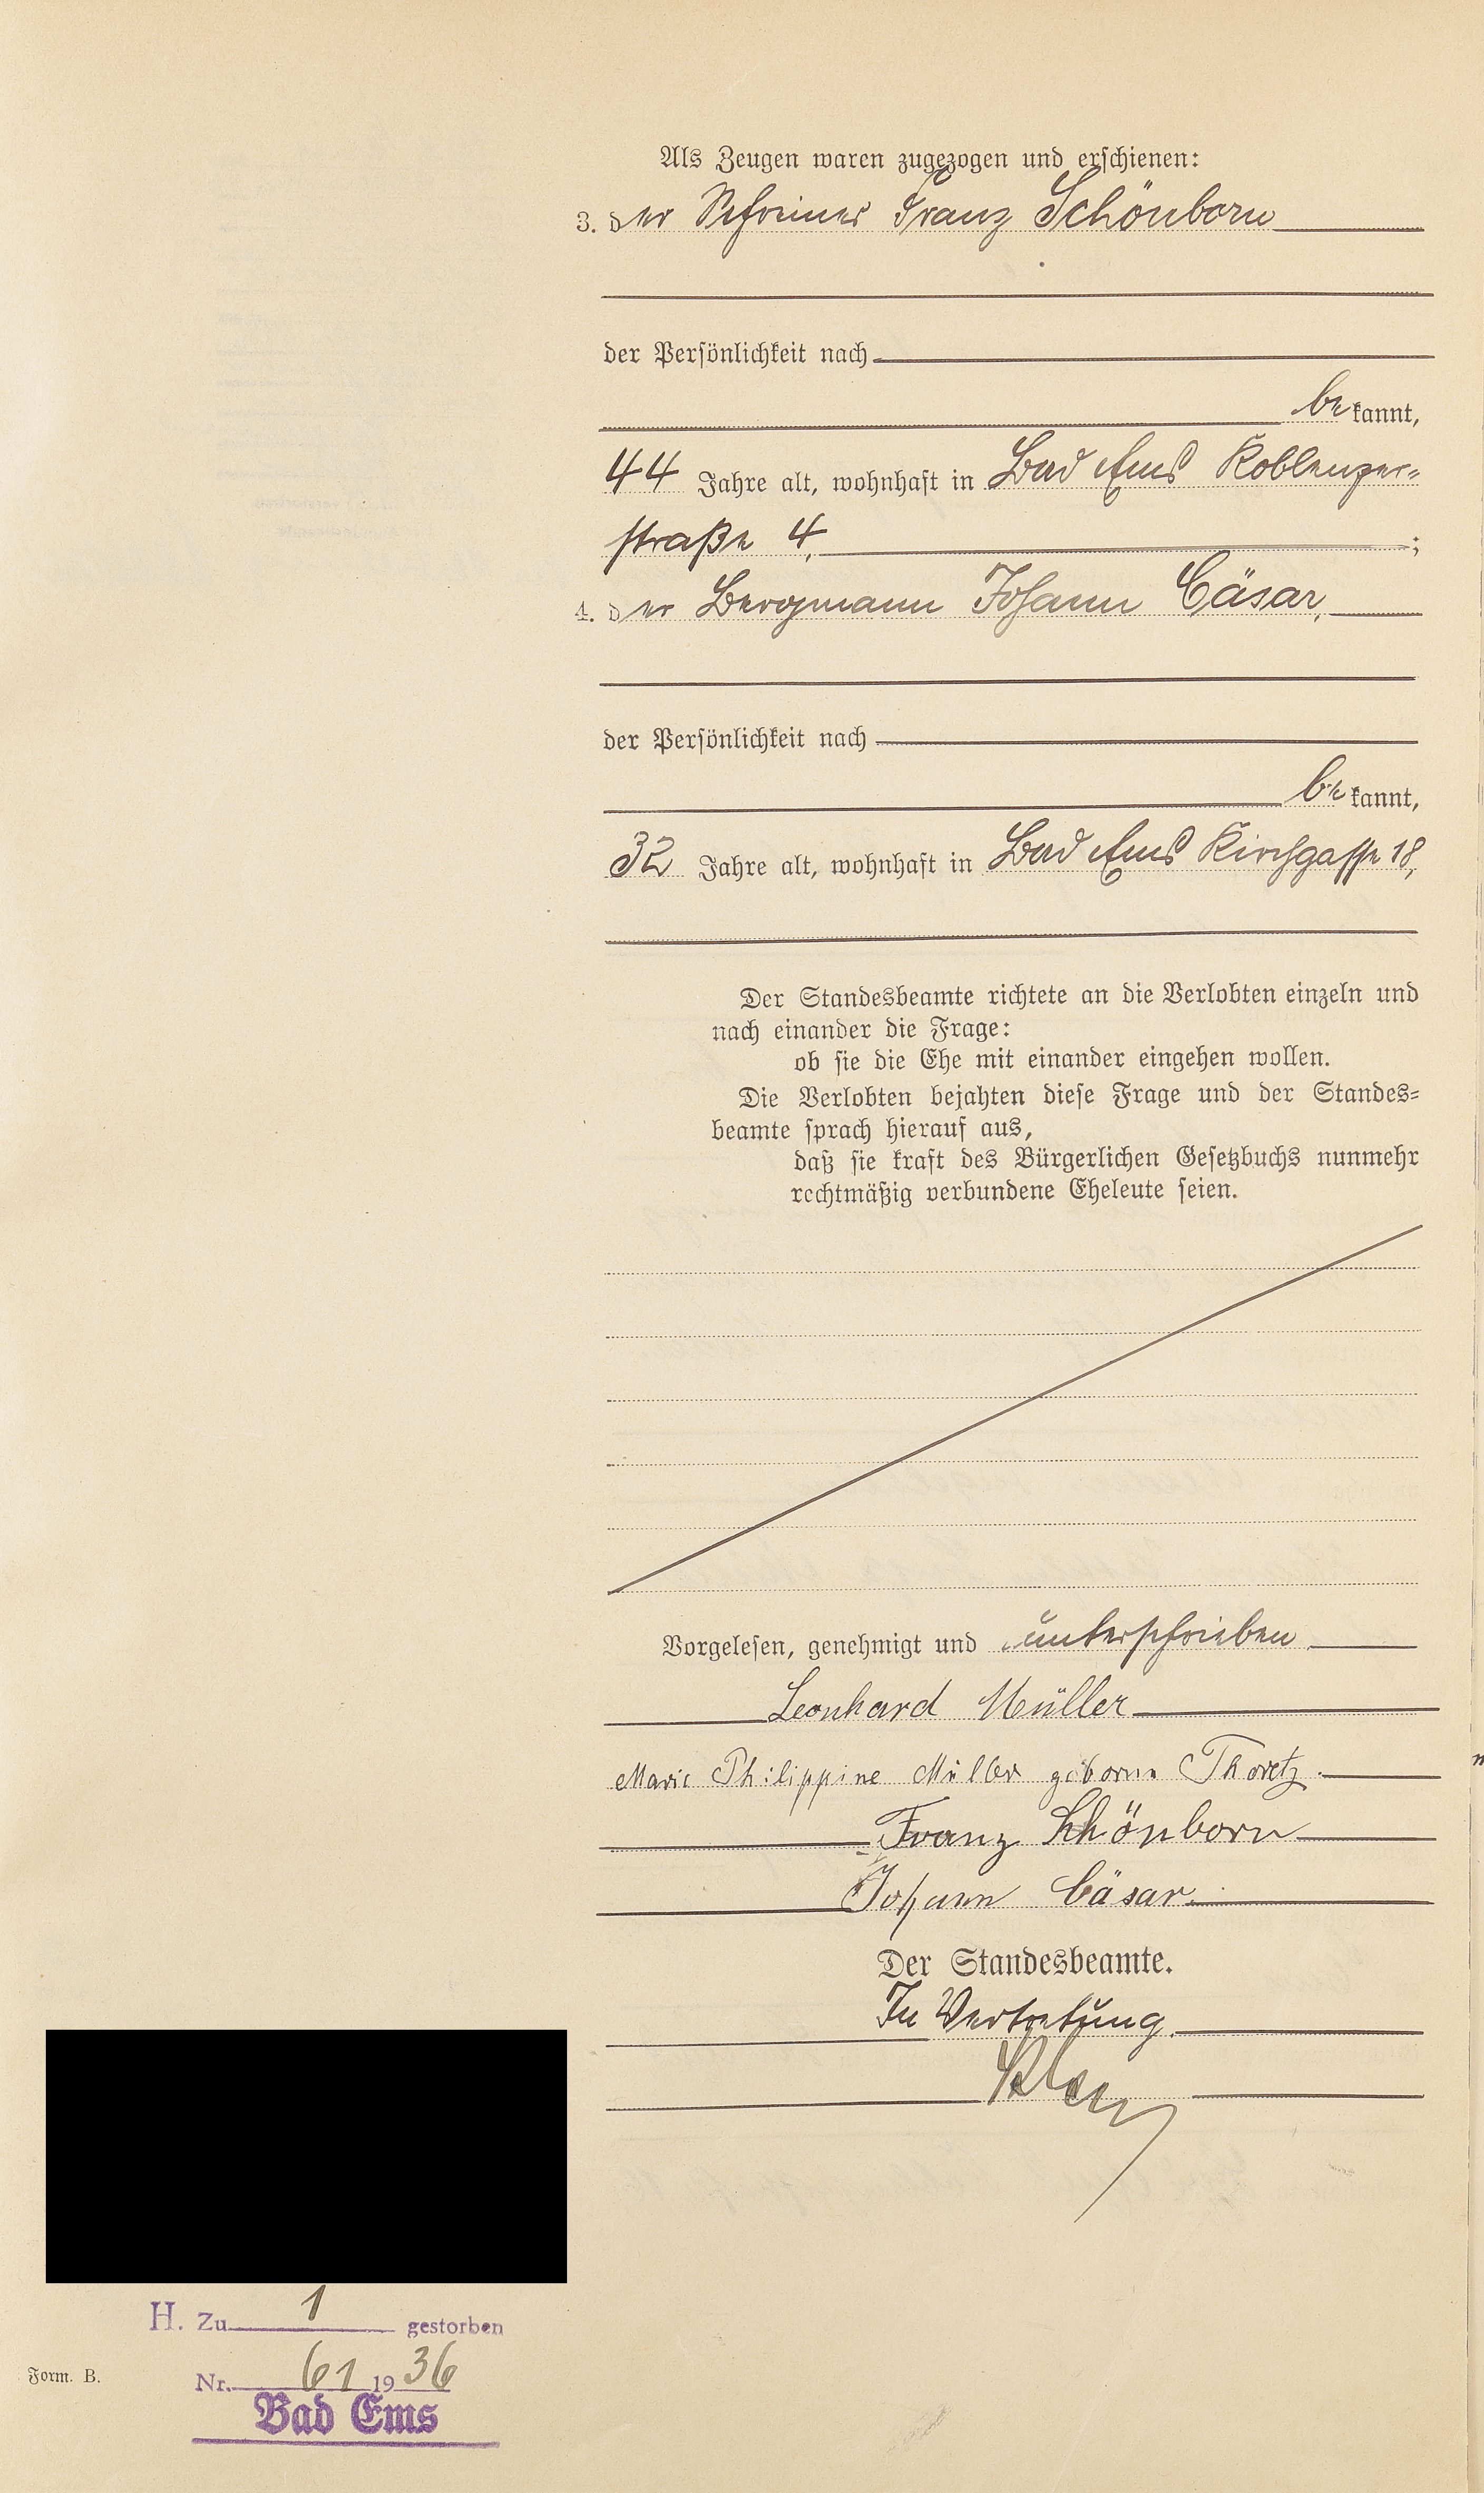 Als Zeugen waren zugezogen und erschienen:
3. der Schreiner Franz Schönborn
der Persönlichkeit nach
bekannt,
44 Jahre alt, wohnhaft in Bad Ems Koblenzer-
straße 4, ;
4. der Bergmann Johann Cäsar,
der Persönlichkeit nach
bekannt,
32 Jahre alt, wohnhaft in Bad Ems Kirchgasse 18,
Der Standesbeamte richtete an die Verlobten einzeln und
nach einander die Frage:
ob sie die Ehe mit einander eingehen wollen.
Die Verlobten bejahten diese Frage und der Standes-
beamte sprach hierauf aus,
daß sie kraft des Bürgerlichen Gesetzbuchs nunmehr
rechtmäßig verbundene Eheleute seien.
Vorgelesen, genehmigt und unterschrieben
Leonhard Müller
Marie Philippine Müller geborne Thoretz.
Franz Schönborn
Johann Cäsar.
Der Standesbeamte.
In Vertretung.
H. Zu 1 gestorben
Nr. 61 1936
Bad Ems
Form. B.